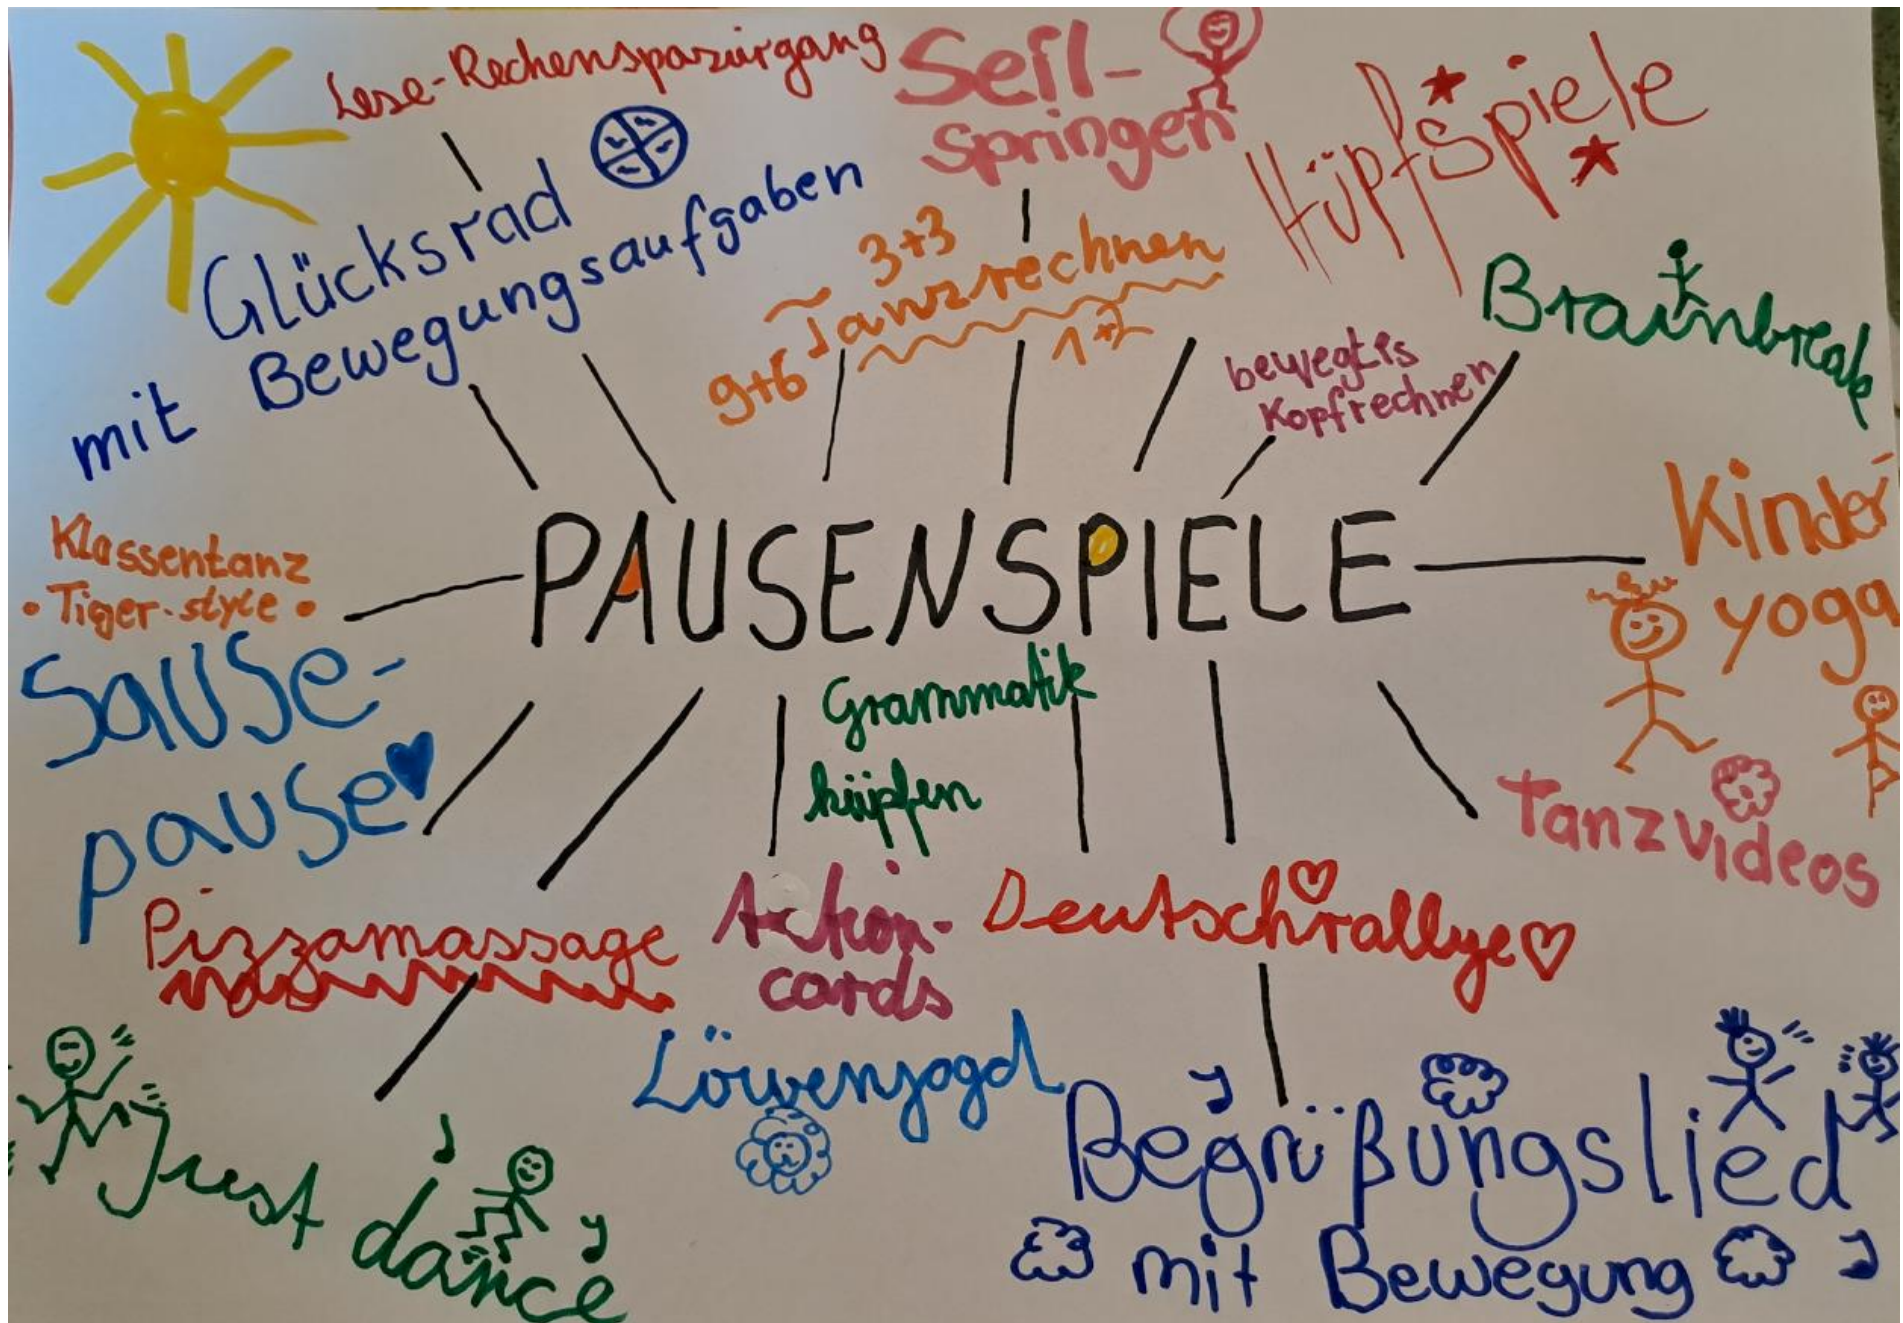 Lese-Rechenspaziergang
Seil-
springen
Hüpfspiele
Glücksrad
mit Bewegungsaufgaben
3+3
Tanzrechnen
9+6
1+2
Brainbreak
bewegtes
Kopfrechnen
Kinder
yoga
Klassentanz
• Tiger-style •
PAUSENSPIELE
Sause-
pause
Grammatik
hüpfen
Tanzvideos
Pizzamassage
Action-
cards
Deutschrallye
Löwenjagd
Just
dance
Begrüßungslied
mit Bewegung